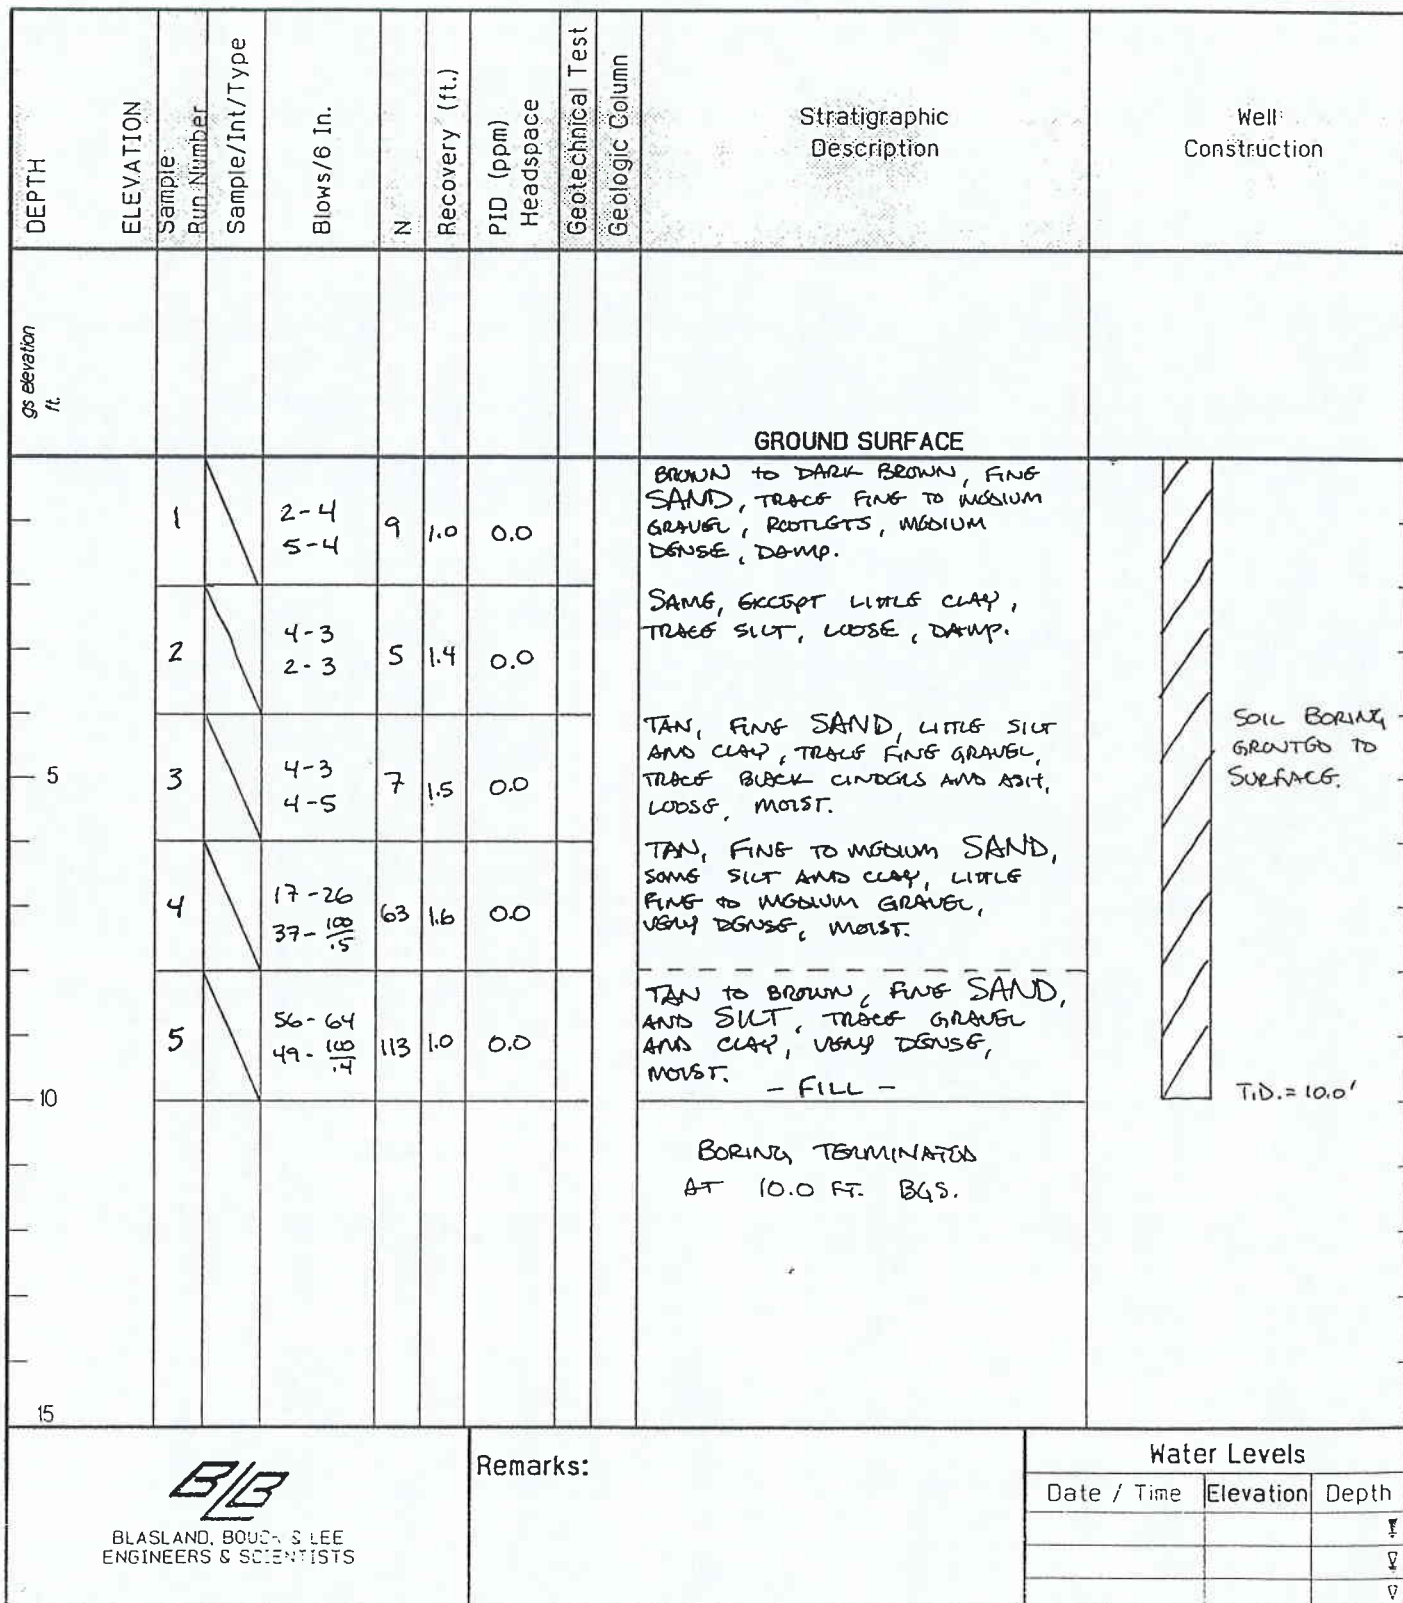 DEPTH
ELEVATION
Sample
Run Number
Sample/Int/Type
Blows/6 In.
N
Recovery (ft.)
PID (ppm)
Headspace
Geotechnical Test
Geologic Column
Stratigraphic
Description
Well
Construction
gs elevation
ft.
GROUND SURFACE
1
2-4
5-4
9
1.0
0.0
BROWN to DARK BROWN, FINE
SAND, TRACE FINE TO MEDIUM
GRAVEL, ROOTLETS, MEDIUM
DENSE, DAMP.
2
4-3
2-3
5
1.4
0.0
SAME, EXCEPT LITTLE CLAY,
TRACE SILT, LOOSE, DAMP.
5
3
4-3
4-5
7
1.5
0.0
TAN, FINE SAND, LITTLE SILT
AND CLAY, TRACE FINE GRAVEL,
TRACE BLACK CINDERS AND ASH,
LOOSE, MOIST.
SOIL BORING
GROUTED TO
SURFACE.
4
17-26
37-100/.5
63
1.6
0.0
TAN, FINE TO MEDIUM SAND,
SOME SILT AND CLAY, LITTLE
FINE to MEDIUM GRAVEL,
VERY DENSE, MOIST.
5
56-64
49-100/.4
113
1.0
0.0
TAN to BROWN, FINE SAND,
AND SILT, TRACE GRAVEL
AND CLAY, VERY DENSE,
MOIST.
- FILL -
10
T.D. = 10.0'
BORING TERMINATED
AT 10.0 FT. BGS.
15
BLB
BLASLAND, BOUCK & LEE
ENGINEERS & SCIENTISTS
Remarks:
Water Levels
Date / Time
Elevation
Depth